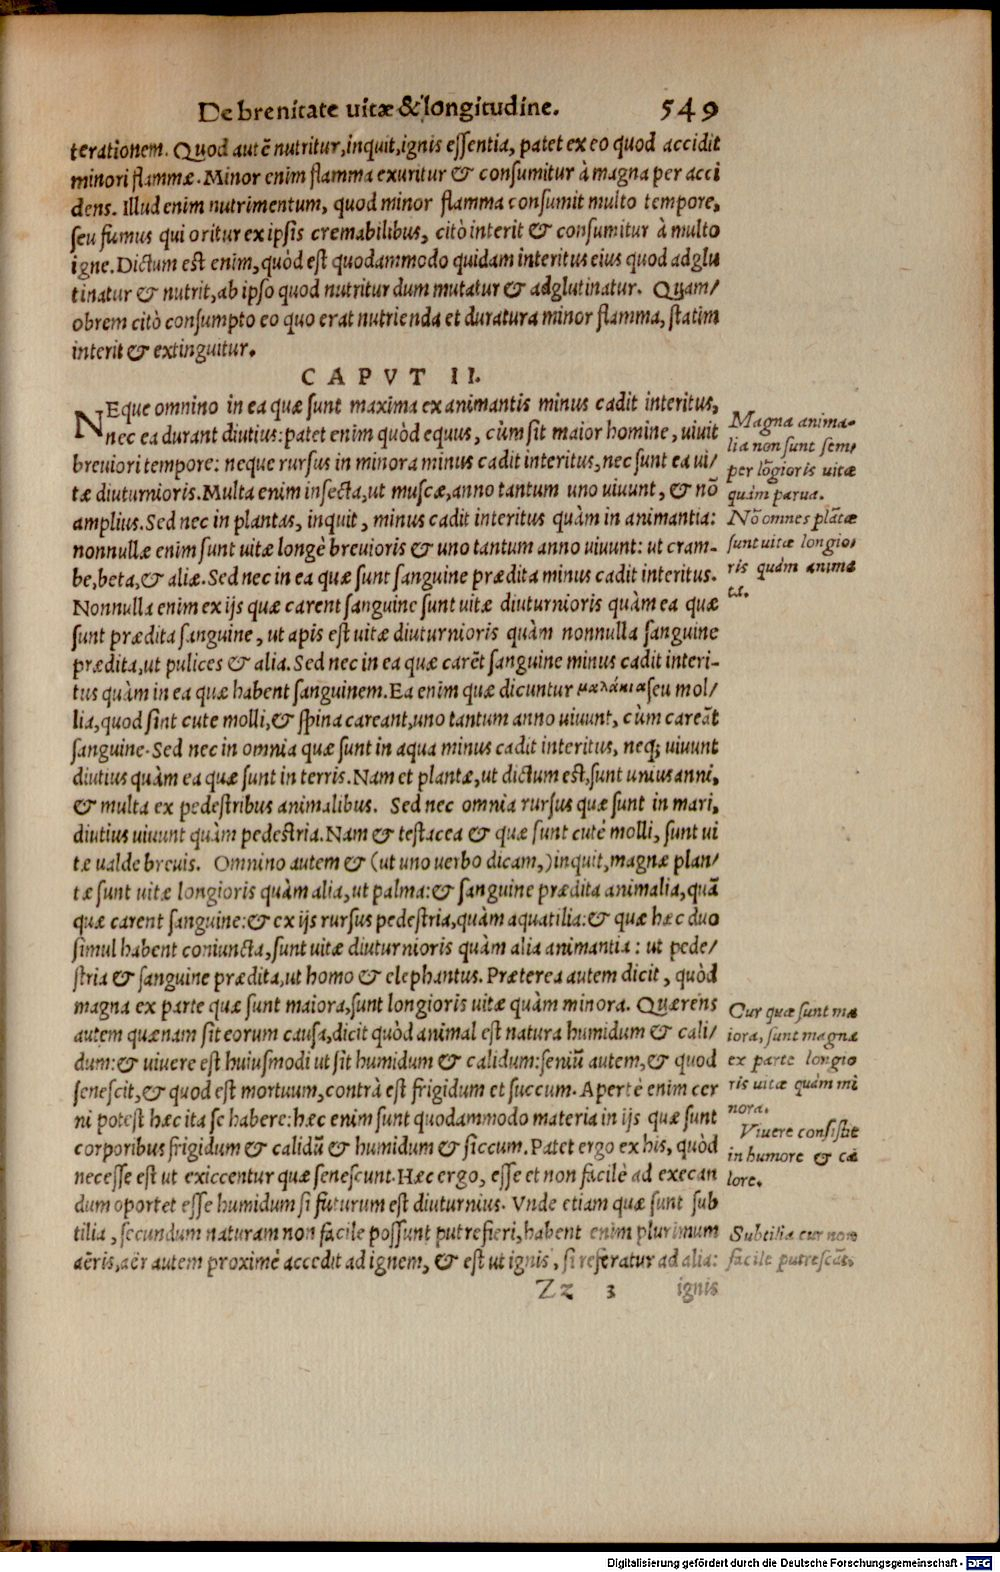 De brenitate uitæ & longitudine. 549
terationem. Quod autē nutritur, inquit, ignis essentia, patet ex eo quod accidit
minori flammæ. Minor enim flamma exuritur & consumitur à magna per acci
dens. Illud enim nutrimentum, quod minor flamma consumit multo tempore,
seu fumus qui oritur ex ipsis cremabilibus, citò interit & consumitur à multo
igne. Dictum est enim, quòd est quodammodo quidam interitus eius quod adglu
tinatur & nutrit, ab ipso quod nutritur dum mutatur & adglutinatur. Quam/
obrem citò consumpto eo quo erat nutrienda et duratura minor flamma, statim
interit & extinguitur.
CAPVT II.
NEque omnino in ea quæ sunt maxima ex animantis minus cadit interitus,
nec ea durant diutius: patet enim quòd equus, cùm sit maior homine, uiuit
breuiori tempore: neque rursus in minora minus cadit interitus, nec sunt ea ui/
tæ diuturnioris. Multa enim insecta, ut muscæ, anno tantum uno uiuunt, & nō
amplius. Sed nec in plantas, inquit, minus cadit interitus quàm in animantia:
nonnullæ enim sunt uitæ longè breuioris & uno tantum anno uiuunt: ut cram-
be, beta, & aliæ. Sed nec in ea quæ sunt sanguine prædita minus cadit interitus.
Nonnulla enim ex ijs quæ carent sanguine sunt uitæ diuturnioris quàm ea quæ
sunt prædita sanguine, ut apis est uitæ diuturnioris quàm nonnulla sanguine
prædita, ut pulices & alia. Sed nec in ea quæ carēt sanguine minus cadit interi-
tus quàm in ea quæ habent sanguinem. Ea enim quæ dicuntur μαλάκια seu mol/
lia, quod sint cute molli, & spina careant, uno tantum anno uiuunt, cùm careāt
sanguine. Sed nec in omnia quæ sunt in aqua minus cadit interitus, neq; uiuunt
diutius quàm ea quæ sunt in terris. Nam et plantæ, ut dictum est, sunt unius anni,
& multa ex pedestribus animalibus. Sed nec omnia rursus quæ sunt in mari,
diutius uiuunt quàm pedestria. Nam & testacea & quæ sunt cute molli, sunt ui
tæ ualde breuis. Omnino autem & (ut uno uerbo dicam,) inquit, magnæ plan/
tæ sunt uitæ longioris quàm alia, ut palma: & sanguine prædita animalia, quā
quæ carent sanguine: & ex ijs rursus pedestria, quàm aquatilia: & quæ hæc duo
simul habent coniuncta, sunt uitæ diuturnioris quàm alia animantia: ut pede/
stria & sanguine prædita, ut homo & elephantus. Præterea autem dicit, quòd
magna ex parte quæ sunt maiora, sunt longioris uitæ quàm minora. Quærens
autem quænam sit eorum causa, dicit quòd animal est natura humidum & cali/
dum: & uiuere est huiusmodi ut sit humidum & calidum: seniū autem, & quod
senescit, & quod est mortuum, contrà est frigidum et succum. Apertè enim cer
ni potest hæc ita se habere: hæc enim sunt quodammodo materia in ijs quæ sunt
corporibus frigidum & calidū & humidum & siccum. Patet ergo ex his, quòd
necesse est ut exiccentur quæ senescunt. Hæc ergo, esse et non facilè ad execan
dum oportet esse humidum si futurum est diuturnius. Vnde etiam quæ sunt sub
tilia, secundum naturam non facile possunt putrefieri, habent enim plurimum
aëris, aër autem proximè accedit ad ignem, & est ut ignis, si referatur ad alia:
Zz 3 ignis
Magna anima-
lia non sunt sem/
per lōgioris uitæ
quàm parua.
Nō omnes plātæ
sunt uitæ longio/
ris quàm anima
ta.
Cur quæ sunt ma
iora, sunt magnæ
ex parte longio
ris uitæ quàm mi
nora.
Viuere consistit
in humore & ca
lore.
Subtilia cur non
facile putrescāt.
Digitalisierung gefördert durch die Deutsche Forschungsgemeinschaft - DFG